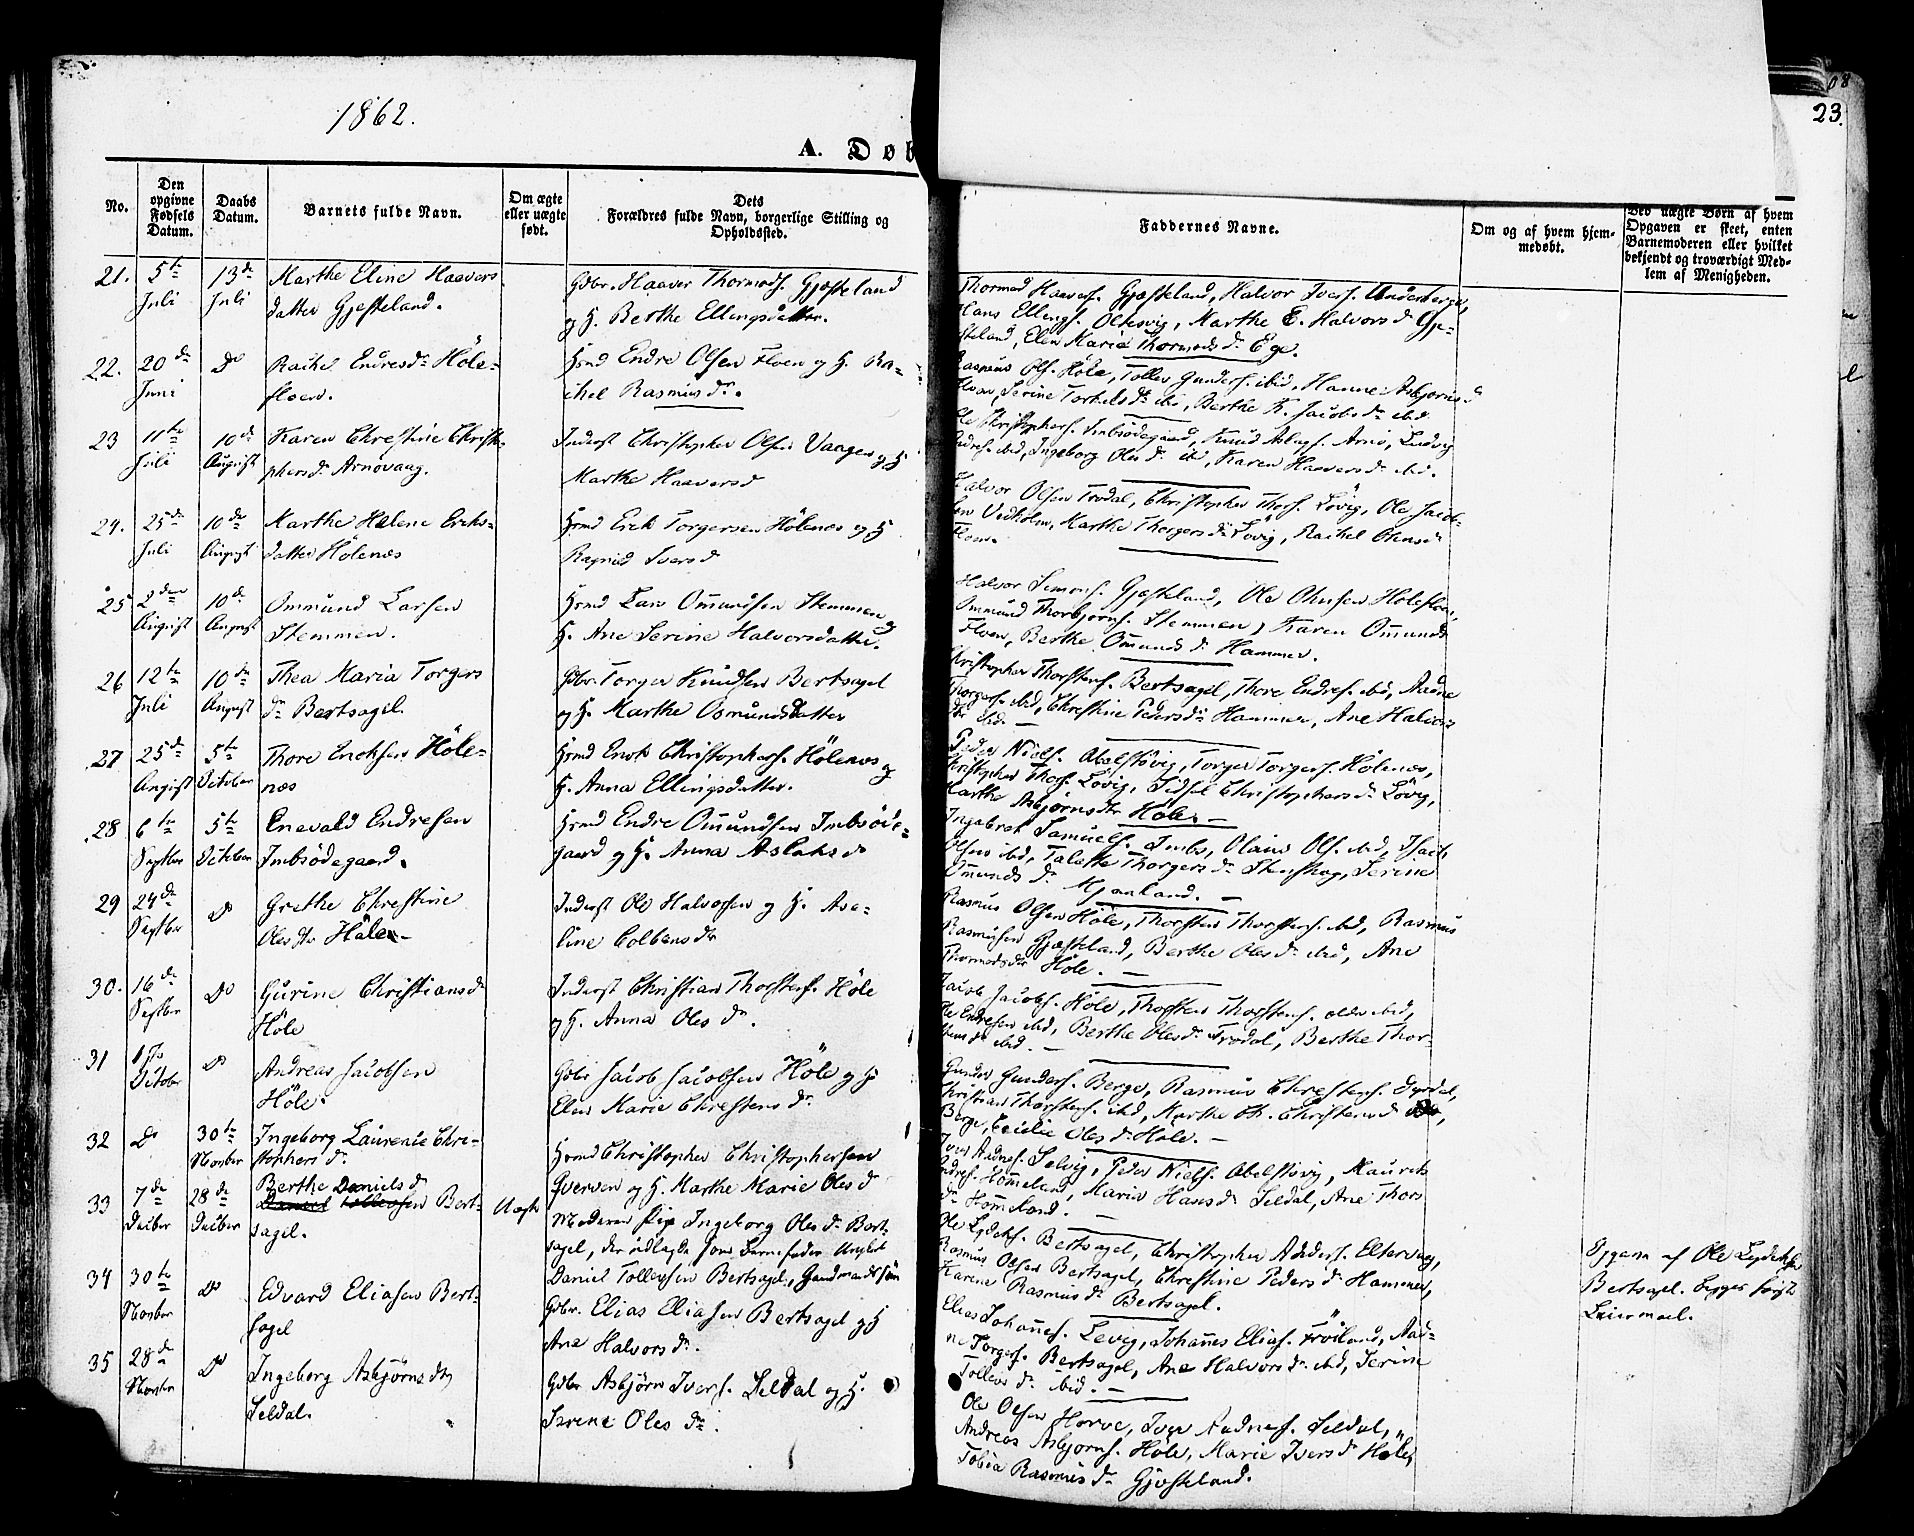 1862.
23.
A. Døb
No.
Den opgivne Fødsels Datum.
Daabs Datum.
Barnets fulde Navn.
Om ægte eller uægte født.
Dets Forældres fulde Navn, borgerlige Stilling og Opholdssted.
Faddernes Navne.
Om og af hvem hjemmedøbt.
Ved uægte Børn af hvem Opgaven er skeet, enten Barnemoderen eller hvilket bekjendt og troværdigt Medlem af Menigheden.
21. 5te Juli 13de Juli
Marthe Eline Haavers
datter Gjesteland.
Gdbr. Haaver Thormods. Gjesteland
og H. Berthe Ellingsdatter.
Thormod Haavers. Gjesteland, Halvor Ivers.
Hans Ellings. Oltesvig, Marthe E. Halvorsd Gje-
steland, Elen Maria Thormodsdr Ege.
22. 20de Juni Do
Rachel Endresdr Höle-
floen.
Hsmd Endre Olsen Floen og H. Ra-
chel Rasmusdr.
Rasmus Ols. Höle, Tollev Gunders. ibid, Hanne Asbjörnsd
Floen, Serine Torkelsdr ibid, Berthe K. Jacobsdr ibid
23 11te Juli 10de August
Karen Christine Christo-
phersdr Arnövaag.
Inderst Christopher Olsen Vaagen og H
Marthe Haaversd
Ole Christophers. Imbsödegaard, Knud Aslags. Arnö, Ludvig
Endres. ibid, Ingeborg Olesdr ibid, Karen Haaversdr ibid.
24. 25de Juli 10de August
Marthe Helene Eriks-
datter Hölenæs
Hsmd Erik Torgersen Hölenæs og H
Ragnild Iversd
Halvor Olsen Frödal, Christopher Thors. Lövig, Ole Jacob-
sen Vedholm, Marthe Thorgersdr Lövig, Rachel
Floen.
25 2den August 10de August
Ommund Larsen
Stemmen.
Hsmd Lars Omundsen Stemmen og
H. Ane Serine Halvorsdatter.
Halvor Simons. Gjesteland, Ole Olsen Hölefloen,
Ommund Thorbjörns. Stemmen, Karen Omunds
Floen, Berthe Omundsdr Hammer.
26 12te Juli 10de August
Thea Maria Torgers
dr Bertsagel.
Gdbr. Torger Knudsen Bertsagel
og H. Marthe Osmundsdatter
Christopher Thorstens. Bertsagel, Thore Endres. ibid, Aadne
Thorgers. ibid, Christine Pedersdr Hammer, Ane Halvors
dr ibid.
27 25de August 5te October
Thore Eriksen Höle-
næs
Hsmd Erik Christophers. Hölenæs og
H. Anna Ellingsdatter.
Peder Niels. Abelstövig, Torger Torgers. Hölenæs,
Christopher Thors. Lövig, Sidsel Christophersdr Lövig,
Marthe Asbjörnsdtr Höle.
28 6te Septber 5te October
Enevald Endresen
Imbsödegaard.
Hsmd Endre Omundsen Imbsöde-
gaard og H. Anna Aslaksd
Ingebret Samuels. Imbs, Olaus Ols. ibid, Isak
Olsen ibid, Talette Thorgersdr Stenskog, Serine
Omundsdr Mjaaland.
29 24de Septber Do
Grethe Christine
Olesdtr Höle
Inderst Ole Halvorsen og H. Ase-
line Colbensdr
Rasmus Olsen Höle, Thorsten Thorstens. ibid, Rasmus
Rasmusen Gjesteland, Berthe Olesdr ibid, Ane
Thormodsdtr Höle.
30. 16de Septber Do
Gurine Christiansdr
Höle
Inderst Christian Thorstens. Höle
og H. Anna Olesdr.
Jacob Jacobs. Höle, Thorsten Thorstens. ældr ibid,
Ole Endresen ibid, Berthe Olesdr Frödal, Berthe Thor-
stensdr ibid.
31 1ste October Do
Andreas Jacobsen
Höle.
Gdbr Jacob Jacobsen Höle og H
Elen Marie Christensdr
Gunder Gunders. Berge, Rasmus Christens. Dyrdal,
Christian Thorstens. ibid, Marthe Ch. Christensd
Berge, Cecilie Olesdr Höle.
32 Do 30te Novber
Ingeborg Laurenie Chri-
stophersdr
Hsmd Christopher Christophersen
Qverven og H. Marthe Marie Olesd
Iver Aadnes. Selvig, Peder Niels. Abelstövig, Maurits
Endres. Hommeland, Maria Hansdr Seldal, Ane Thors
dr Hommeland.
33 7de Decber 28de Decber
Berthe Danielsd
Daniel Tollevsen Bert-
sagel.
Uægte
Moderen Pige Ingeborg Olesdr Bert-
sagel, der udlagde som Barnefader Ungkarl
Daniel Tollevsen Bertsagel, Gaardmandssön
Ole Lydeks. Bertsagel, Christopher Anders. Eltervaag,
Rasmus Olsen Bertsagel, Christine Pedersdr Hammer,
Karine Rasmusdr Bertsagel.
Opgave af Ole Lydeksen
Bertsagel. begges første
Leiermaal.
34 30te Novber Do
Edvard Eliasen Bert-
sagel
Gdbr. Elias Eliasen Bertsagel og H
Ane Halvorsdr.
Elias Johannes. Levig, Johannes Elias. Fröiland, Aad-
ne Torgers. Bertsagel, Ane Halvorsdr ibid, Serine
Tollevsdr ibid.
35 28de Novber Do
Ingeborg Asbjörnsdtr
Seldal.
Gdbr Asbjörn Ivers. Seldal og H.
Serene Olesdr.
Ole Olsen Horve, Iver Aadnes. Seldal,
Andreas Asbjørns. Höle, Marie Iversdr Höle,
Tobia Rasmusdr Gjesteland.